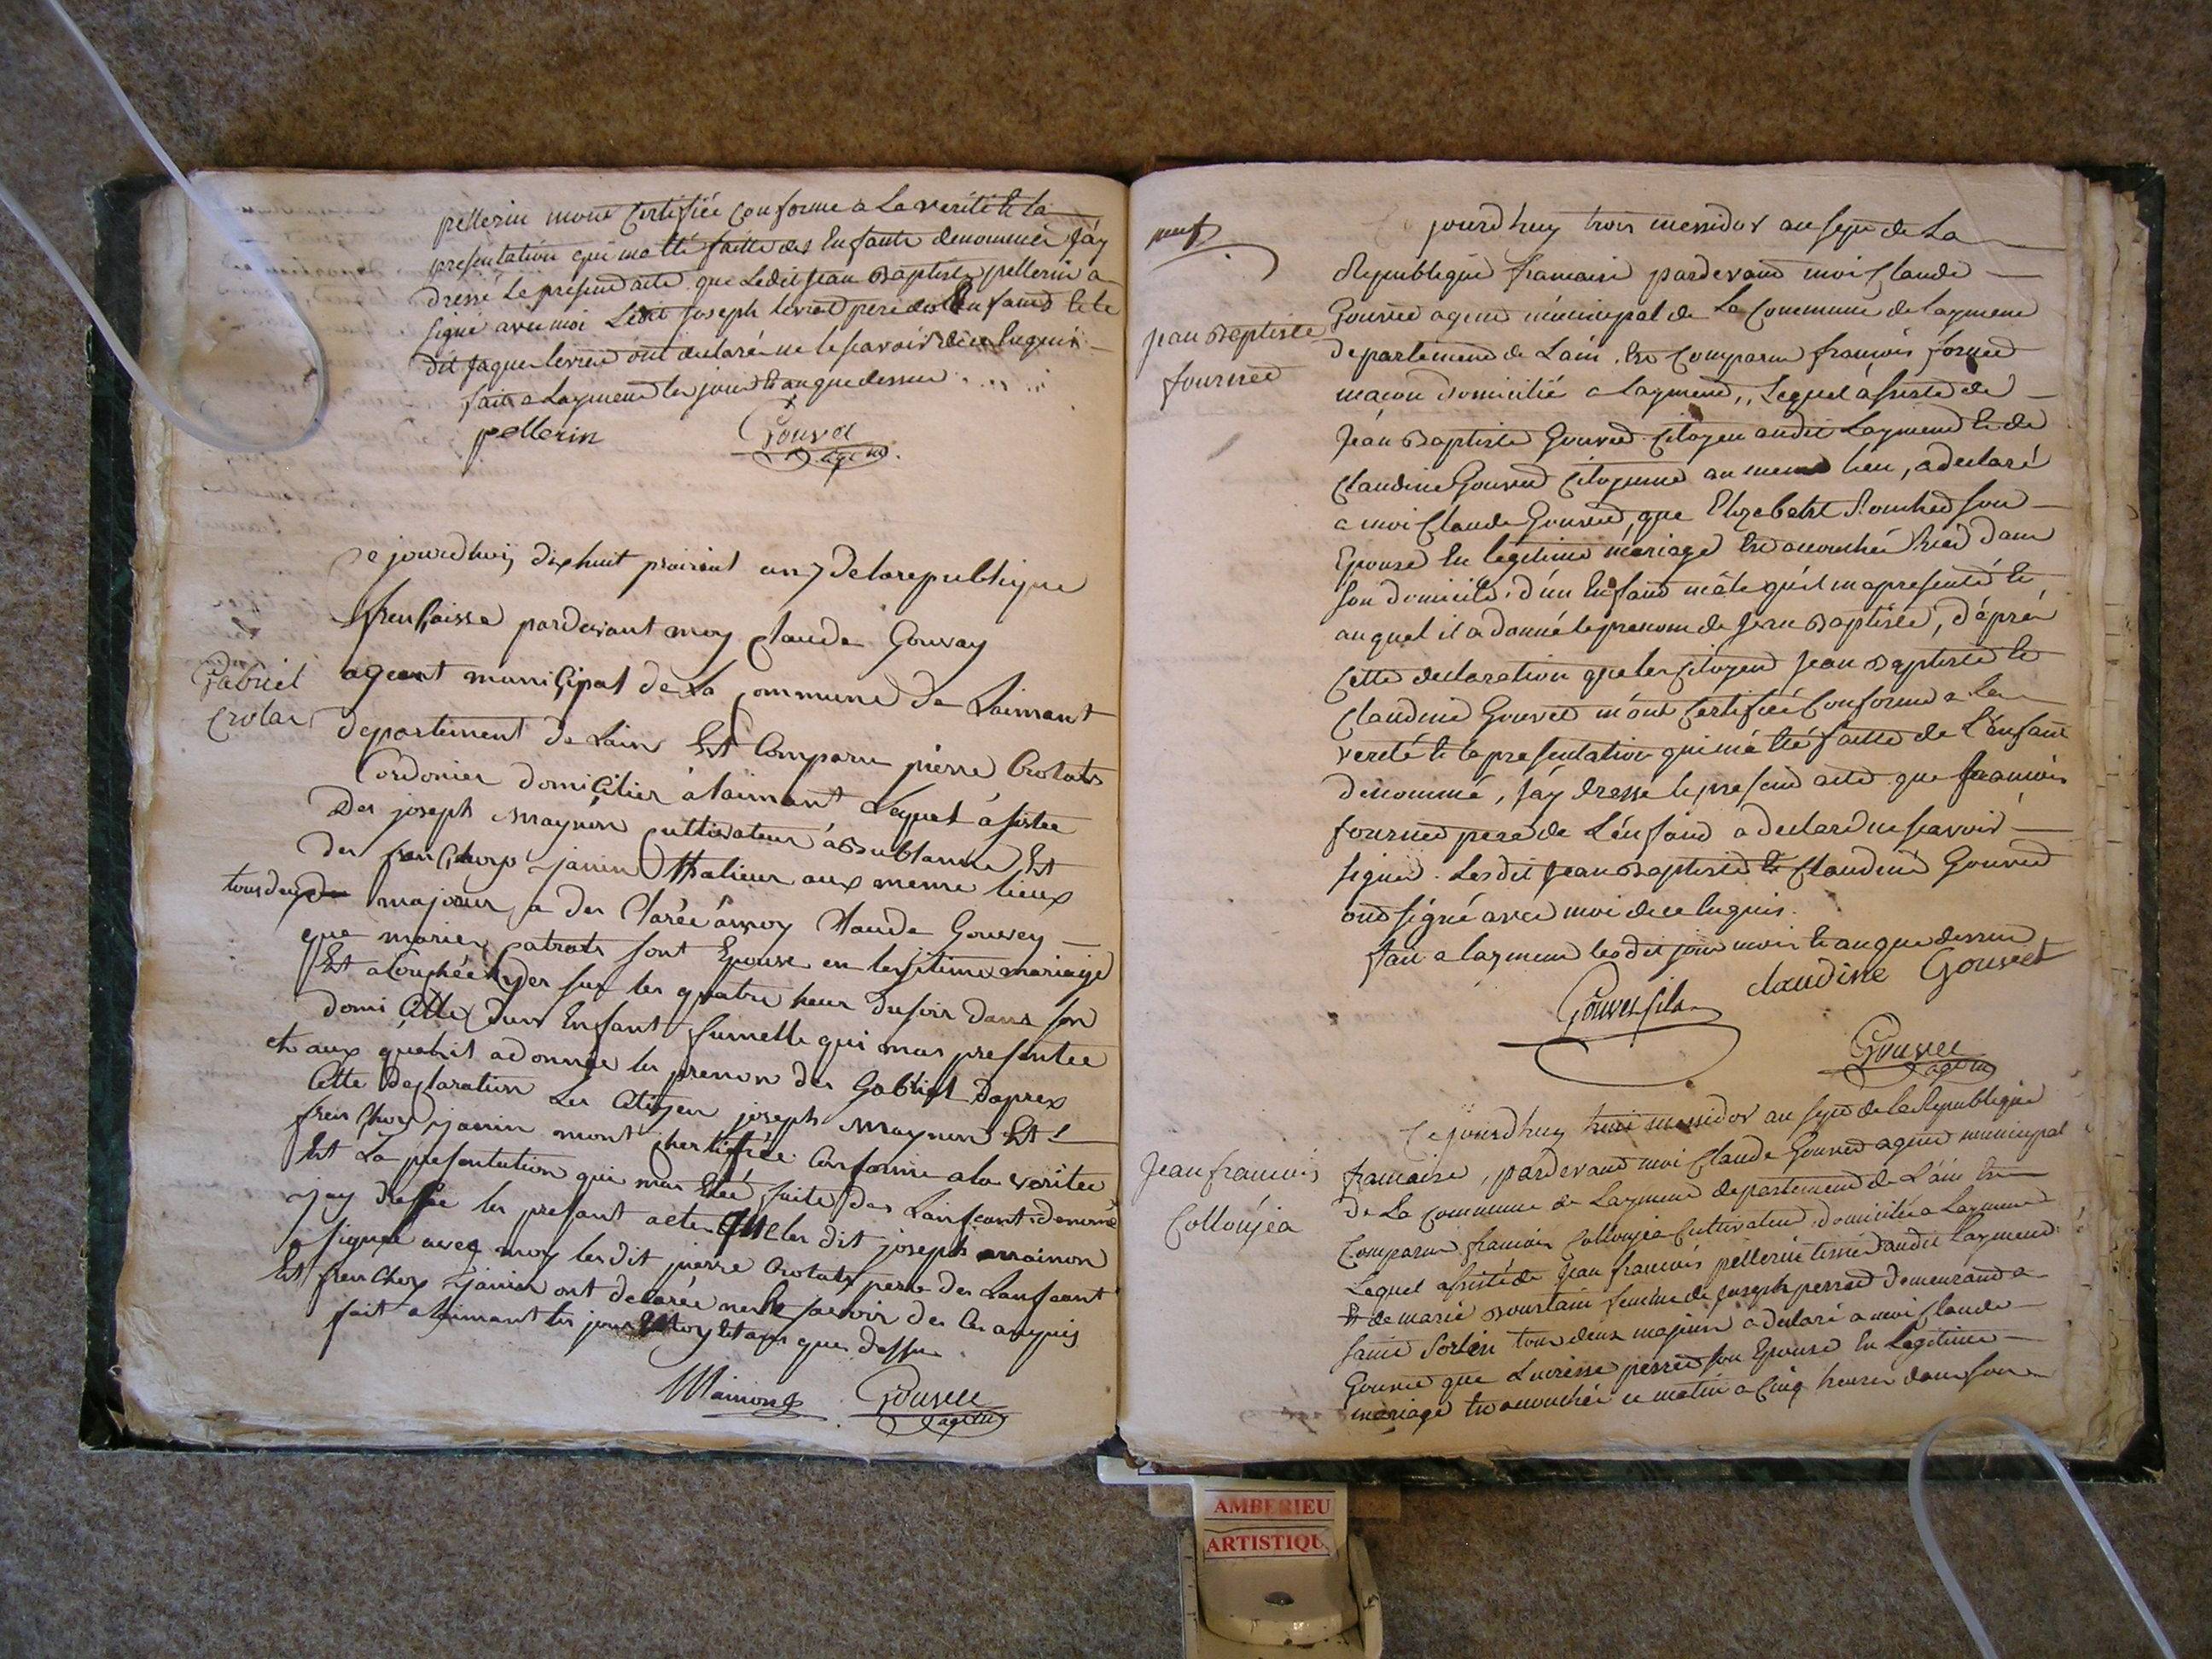 pellerin mont Certifiée Conforme a La verité Et la
presentation qui ma Eté faitte des Enfants denommés Jáy
dressé Le présend acte que Ledit Jean Baptiste pellerin a
signé avec moi Ledit Joseph levrat pere des Enfants Et le
dit Jaque levrat ont declaré ne le scavoir de ce Enquis
fait a Laymend les jour Et an que dessus
pellerin Gouvet
agent
Ce jourdhuij dixhuit prairial an 7 de la republique
frençaisse pardevant moy Claude Gouvay
Gabriel
Crotas
agent municipal de La Commune de Laimant
departiment de Lain Est Comparu pierre Crotats
Cordonier domicilier a laimant Lequel ásistée
Des joseph Maynon Cultivateur á Est
Des frenchoys janin aux meme lieux
tous deux majeur a des Clarée ámoy Claude Gouvey
que marier patrats sont Epouse en lesjitime mariage
Est acouchée hyer sur les quatre heur du soir dans son
domicille dun Enfant fumelle qui mas presentee
et aux quelril adonnée les prenon des Gabriel dapres
Cette declaration Les Citoyen joseph Maynon Est
frenchoys janin mont Chertifiée Conforme ala veritee
Est La presentation qui mas Etée faite des Lanfant denomé
jay dressée les presant acte que les dit joseph mainon
a signée avec moy les dit pierre Crotats pere des Lanfant
Est frenchoys janin ont declarée ne le savoir des Ce anquis
fait a Laimant les jour Est an que dessu
Mainon Gouvet
agent
neuf
jourdhuy trois messidor an sept de La
Republique francaise pardevand moi Claude
Jean Baptiste
fournet
Gouvet agend municipal de La Commune de laymend
departement de Lain. Est Comparu francois fornet
macon domicilié a laymend,, Lequel assisté de
Jean Baptiste Gouvet Citoyen audit Laymend Et de
Claudine Gouvet Citoyenne au meme lieu, a declaré
a moi Claude Gouvet, que Elizabeht son
Epouse En legitime mariage Est accouchée hier dans
son domicile d'un Enfand mâle qu'il ma presenté Et
auquel il a donné le prenom de Jean Baptiste, d'áprés
Cette declaration que les Citoyens Jean Baptiste Et
Claudine Gouvet m'ont Certifiée Conforme a La
verité Et la presentation qui má Eté faitte de L'enfant
dénommé, Jáy dressé le présend acte que francois
fournet pere de L'enfand a declaré ne scavoir
signer. Lesdit Jean Baptiste Et Claudine Gouvet
ond signé avec moi de ce Enquis.
fait a laymend lesdit jour mois Et an que dessus
Gouvet fils Claudine Gouvet
Gouvet
agent
Ce jourdhuy trois messidor an sept de la Republique
Jean francois
Collonjea
francaise, pardevand moi Claude Gouvet agend municipal
de La Commune de Laymend departement de L'ain Est
Comparu francois Collonjea Cultivateur domicilié a Laymend
Lequel assisté de Jean francois pellerin audit laymend
Et de marie femme de Joseph perret demeurand a
Saint Sorlin tous deux majeurs a declaré a moi Claude
Gouvet que Lucresse perret son Epouse En Legitime
mariage Est accouchée ce matin a Cinq heures dans son
AMBERIEU
ARTISTIQU